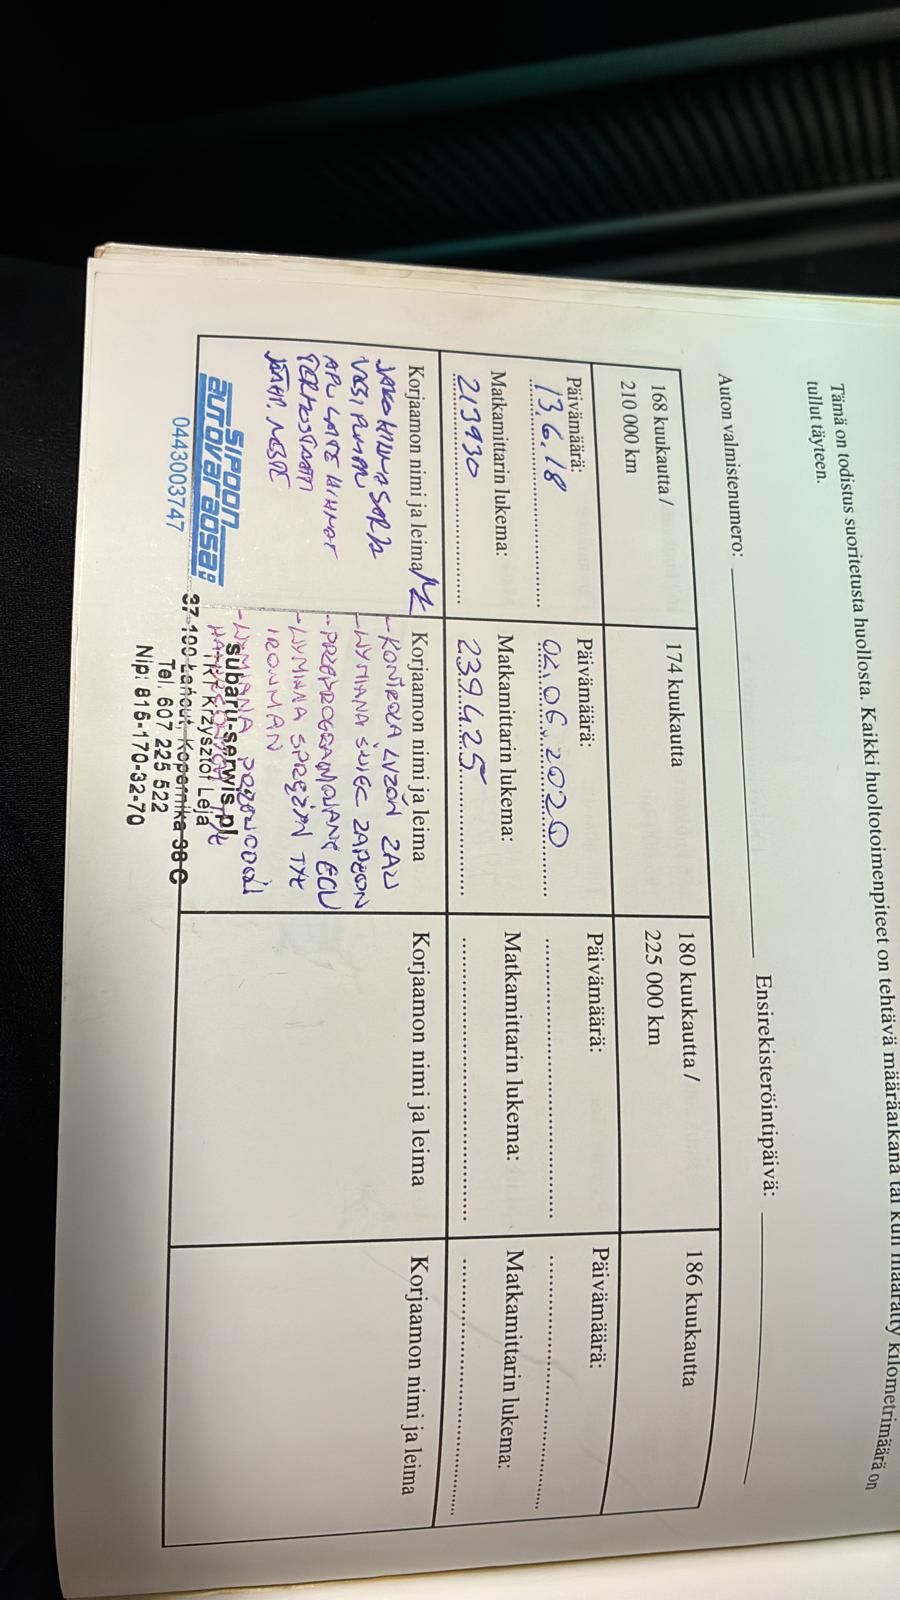 Tämä on todistus suoritetusta huollosta. Kaikki huoltotoimenpiteet on tehtävä määräaikana tai kun määrätty kilometrimäärä on
tullut täyteen.
Auton valmistenumero:
Ensirekisteröintipäivä:
168 kuukautta /
210 000 km
Päivämäärä:
13.6.18
Matkamittarin lukema:
213930
Korjaamon nimi ja leima
JAKOHIHNASARJA
VESIPUMPPU
APULAITE HIHNAT
TERMOSTAATTI
JÄÄHD. NESTE
SIPOON
autovaraosat
0443003747
174 kuukautta
Päivämäärä:
02.06.2020
Matkamittarin lukema:
239425
Korjaamon nimi ja leima
- KONTROLA LUZÓW ZAW
- WYMIANA ŚWIEC ZAPŁON
- PRZEPROGRAMOWANY ECU
- WYMIANA SPRĘŻYN TYŁ
IRONMAN
- WYMIANA PRZEWODÓW
HAMULCOWYCH TYŁ
subaru-serwis.pl
Krzysztof Leja
37-100 Łańcut, Kopernika 38 C
Tel. 607 225 522
Nip: 815-170-32-70
180 kuukautta /
225 000 km
Päivämäärä:
Matkamittarin lukema:
Korjaamon nimi ja leima
186 kuukautta
Päivämäärä:
Matkamittarin lukema:
Korjaamon nimi ja leima